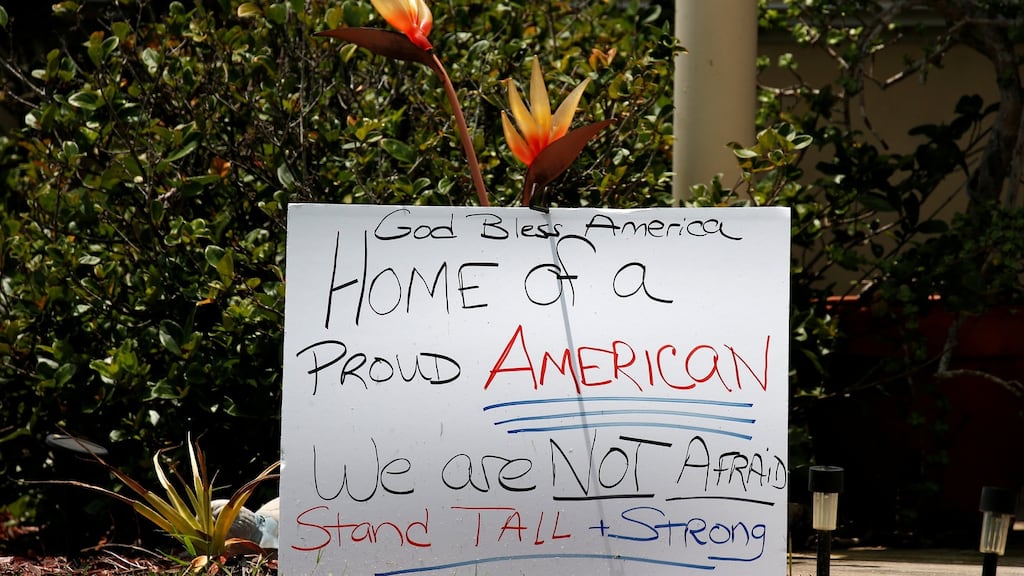 God Bless America
HOME of a
PROUD AMERICAN
We are NOT AFRAID
Stand TALL + Strong